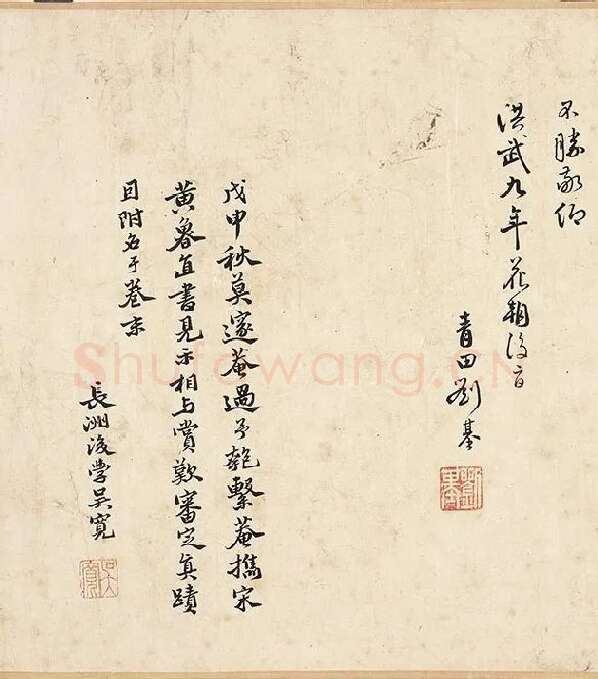 不勝敬仰
洪武九年花朝後一日
青田劉基
戊申秋莫邃菴過予匏繫菴攜宋
黄魯直書見示相与賞歎審定真蹟
因附名于卷末
長洲後學吳寬
劉基
吳寬
Shufawang.CN